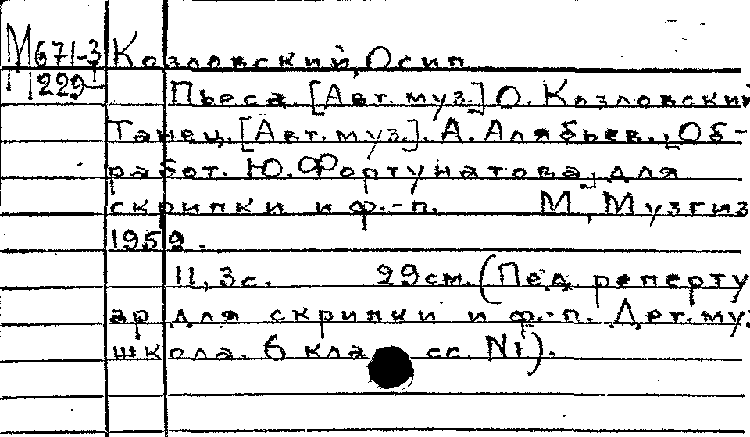 М671-3 Козловский, Осип
229
Пьеса. [Авт. муз.] О. Козловский
Танец. [Авт. муз.]. А. Алябьев. [Об-
работ. Ю. Фортунатова] для
скрипки и ф.-п. М., Музгиз
1959.
11, 3с. 29см. (Пед. реперту
ар для скрипки и ф.-п. Дет. муз.
школа. 6 класс. №1).